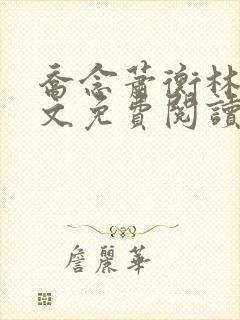 喬念蕭衡林
文免費閱讀
詹麗華